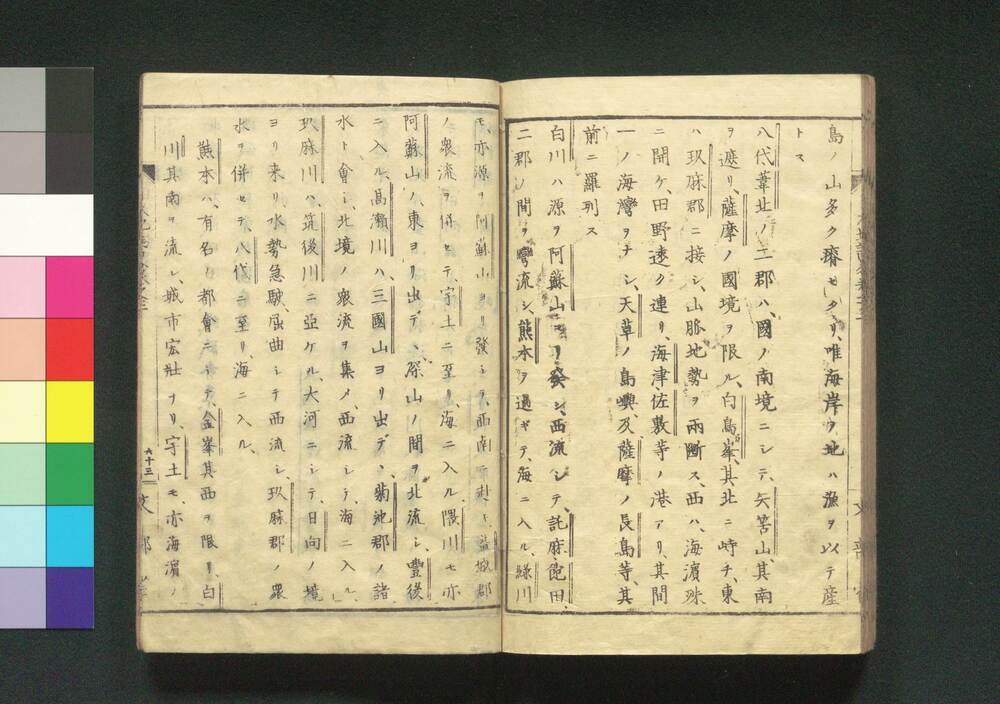 島ノ山多ク瘠セタリ、唯海岸ノ地ハ漁ヲ以テ産
トス
八代葦北ノ二郡ハ、國ノ南境ニシテ、矢筈山、其南
ヲ遮リ、薩摩ノ國境ヲ限ル、白鳥峯、其北ニ峙チ、東
ハ玖麻郡ニ接シ、山脈地勢ヲ兩斷ス、西ハ、海濱殊
ニ開ケ、田野遠ク連リ、海津、佐敷等ノ港アリ、其間
一ノ海灣ヲナシ、天草ノ島嶼、及薩摩ノ長島等、其
前ニ羅列ス
白川ハ源ヲ阿蘇山ヨリ發シ、西流シテ、託麻、飽田、
二郡ノ間ヲ彎流シ、熊本ヲ過ギテ、海ニ入ル、緑川
モ、亦源ヲ阿蘇山ヨリ發シテ、西南ニ赴キ、益城郡
ノ衆流ヲ併セテ、宇土ニ至リ、海ニ入ル、隈川モ亦
阿蘇山ノ、東ヨリ出デ、深山ノ間ヲ北流シ、豐後
ニ入ル、高瀬川ハ、三國山ヨリ出デ、菊池郡ノ諸
水ト會シ、北境ノ衆流ヲ集メ、西流シテ、海ニ入ル
玖麻川ハ、筑後川ニ亞ケル、大河ニシテ、日向ノ境
ヨリ来リ、水勢急駛、屈曲シテ西流シ、玖麻郡ノ衆
水ヲ併セテ、八代ニ至リ、海ニ入ル、
熊本ハ、有名ノ都會ニシテ、金峯其西ヲ限リ、白
川其南ヲ流レ、城市宏壯ナリ、宇土モ、亦海濱ノ
六十三
文部省